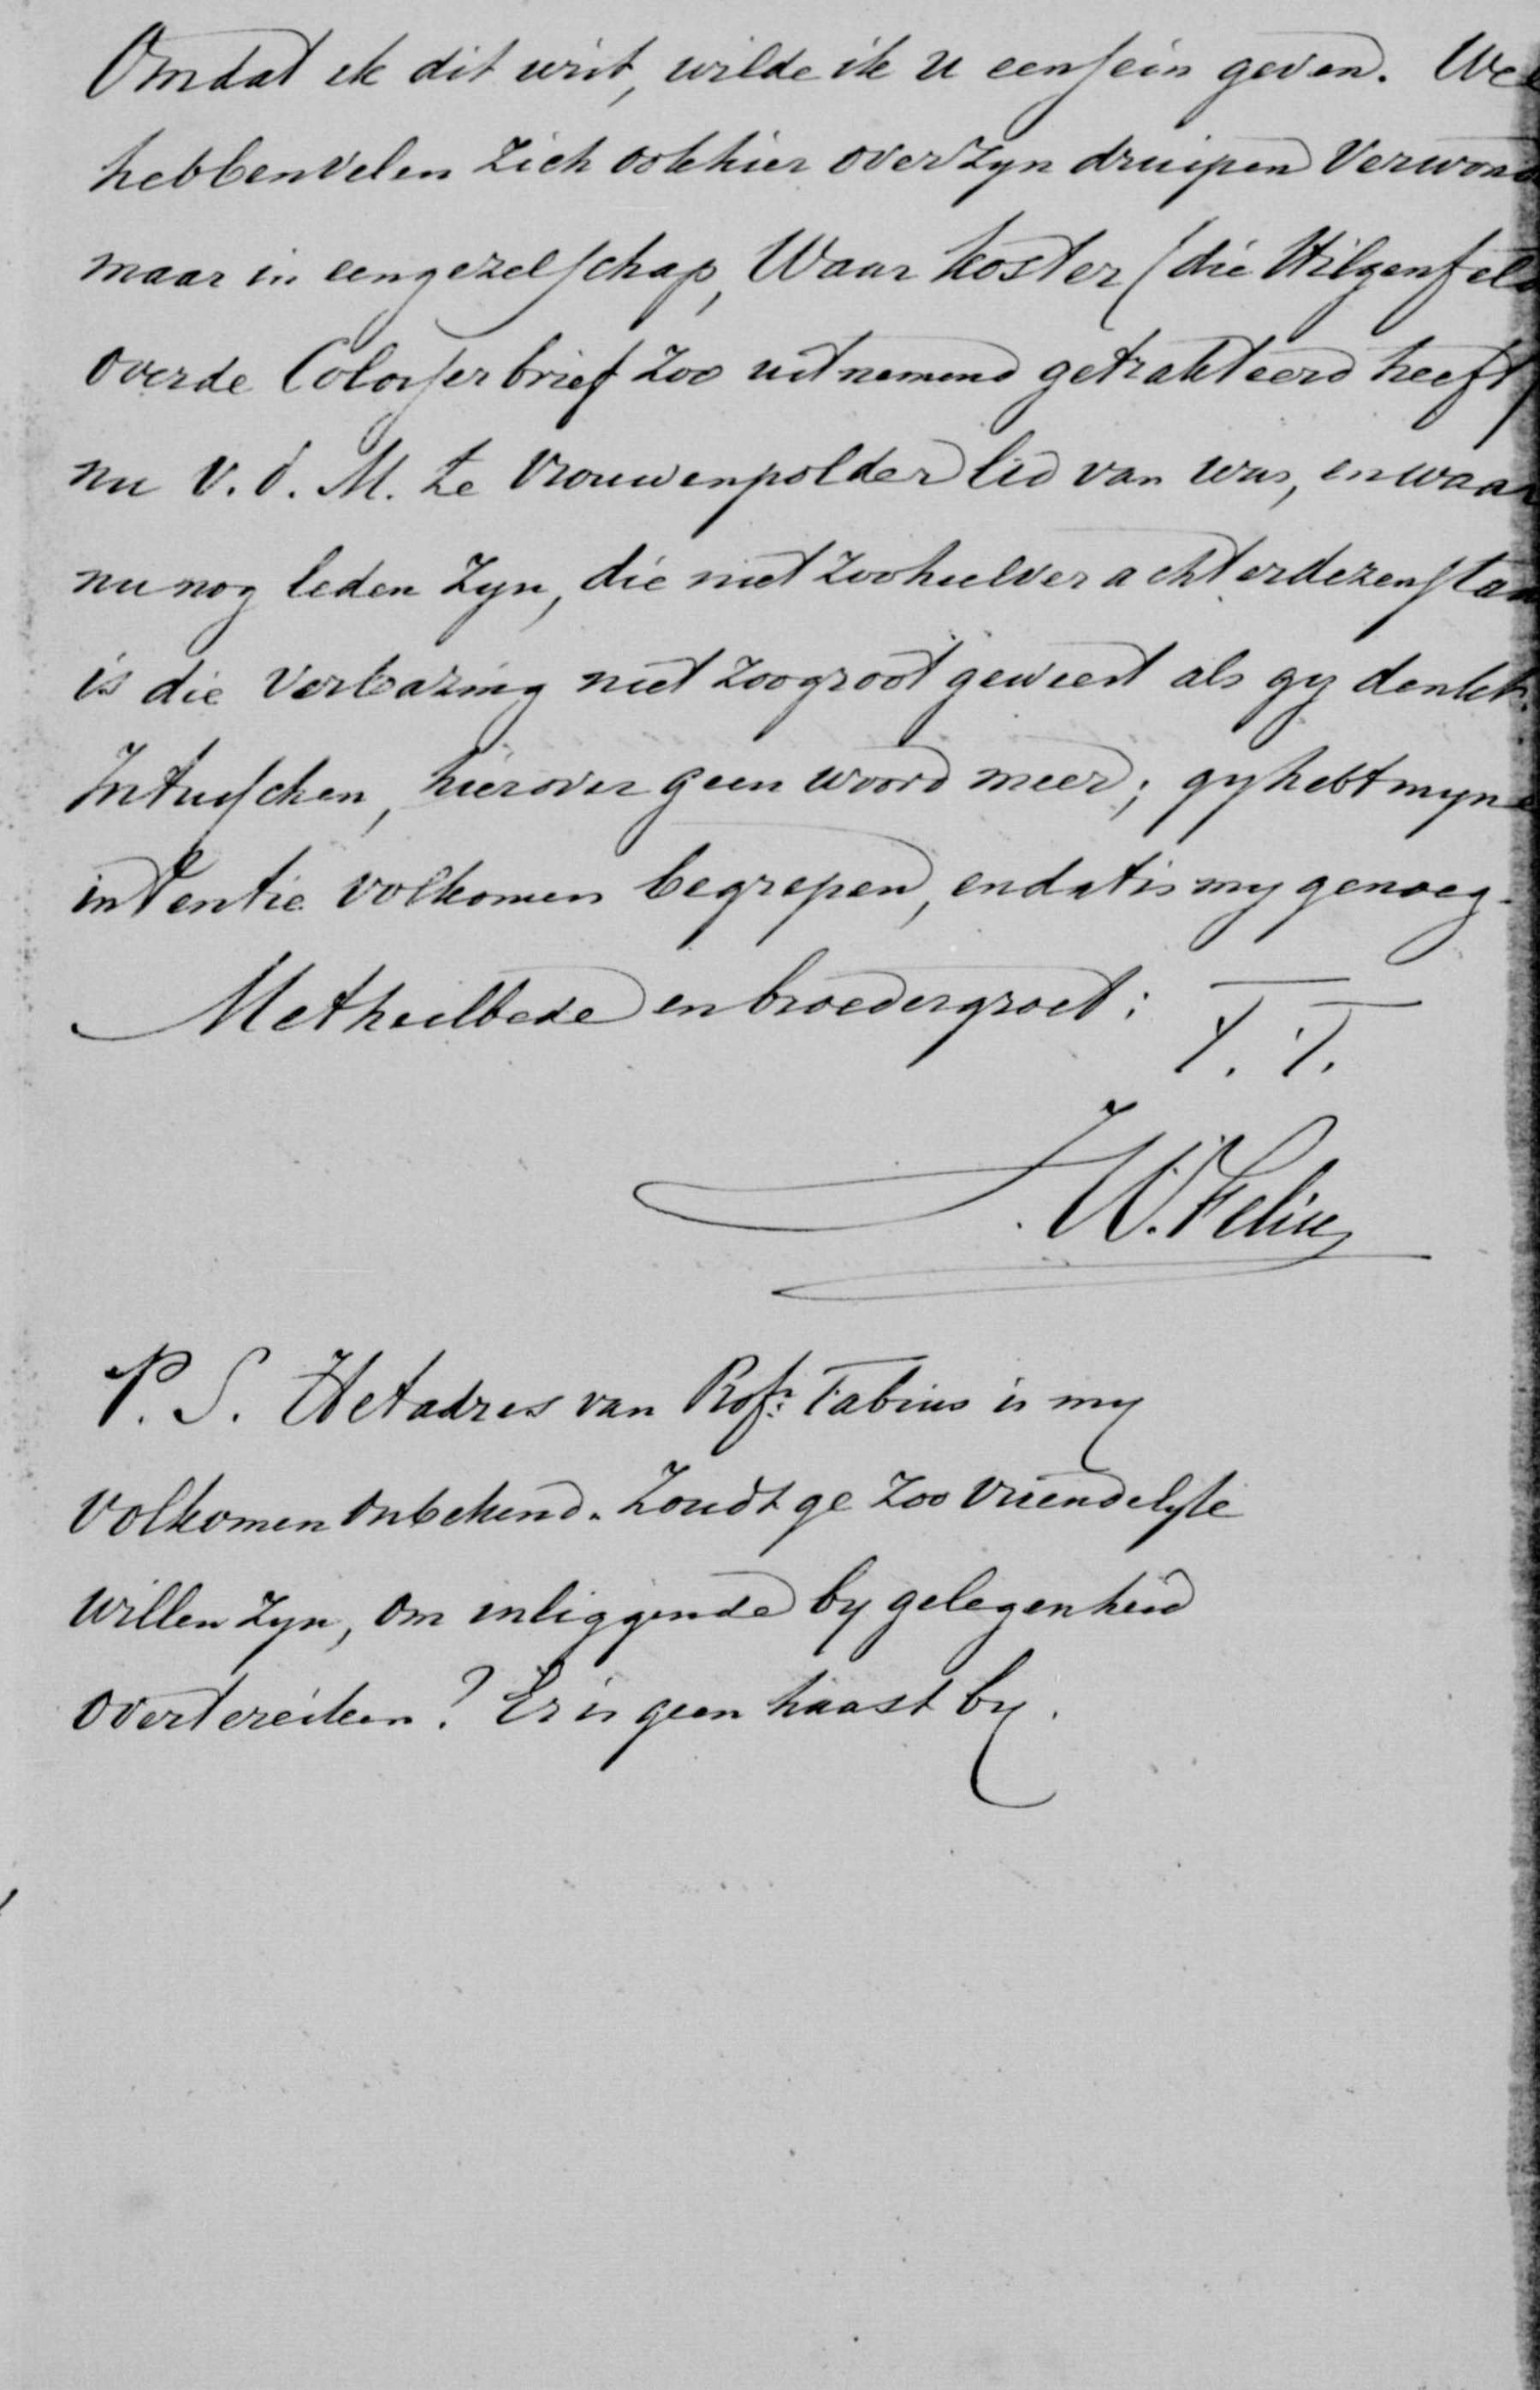 Omdat ik dit wist, wilde ik U een sein geven. Wel
hebben velen zich ook hier over zyn druipen verwond
maar in een gezelschap, waar Koster (die Hilgenfeld
over de Colosser brief zoo uitnemend getrakteerd heeft,
nu V.D.M. te Vrouwenpolder) lid van was, en waar
nu nog leden zyn, die niet zoo heel ver achter dezen staan
is die verbazing niet zoo groot geweest als gy denkt.
Intusschen, hierover geen woord meer; gy hebt myne
intentie volkomen begrepen, en dat is my genoeg.
Met heilbede en broedergroet:
T. T.
J. W. Felix
P. S. Het adres van Profr. Fabius is my
volkomen onbekend. Zoudt ge zoo vriendelyk
willen zyn, om inliggende by gelegenheid
over te reiken? Er is geen haast by.